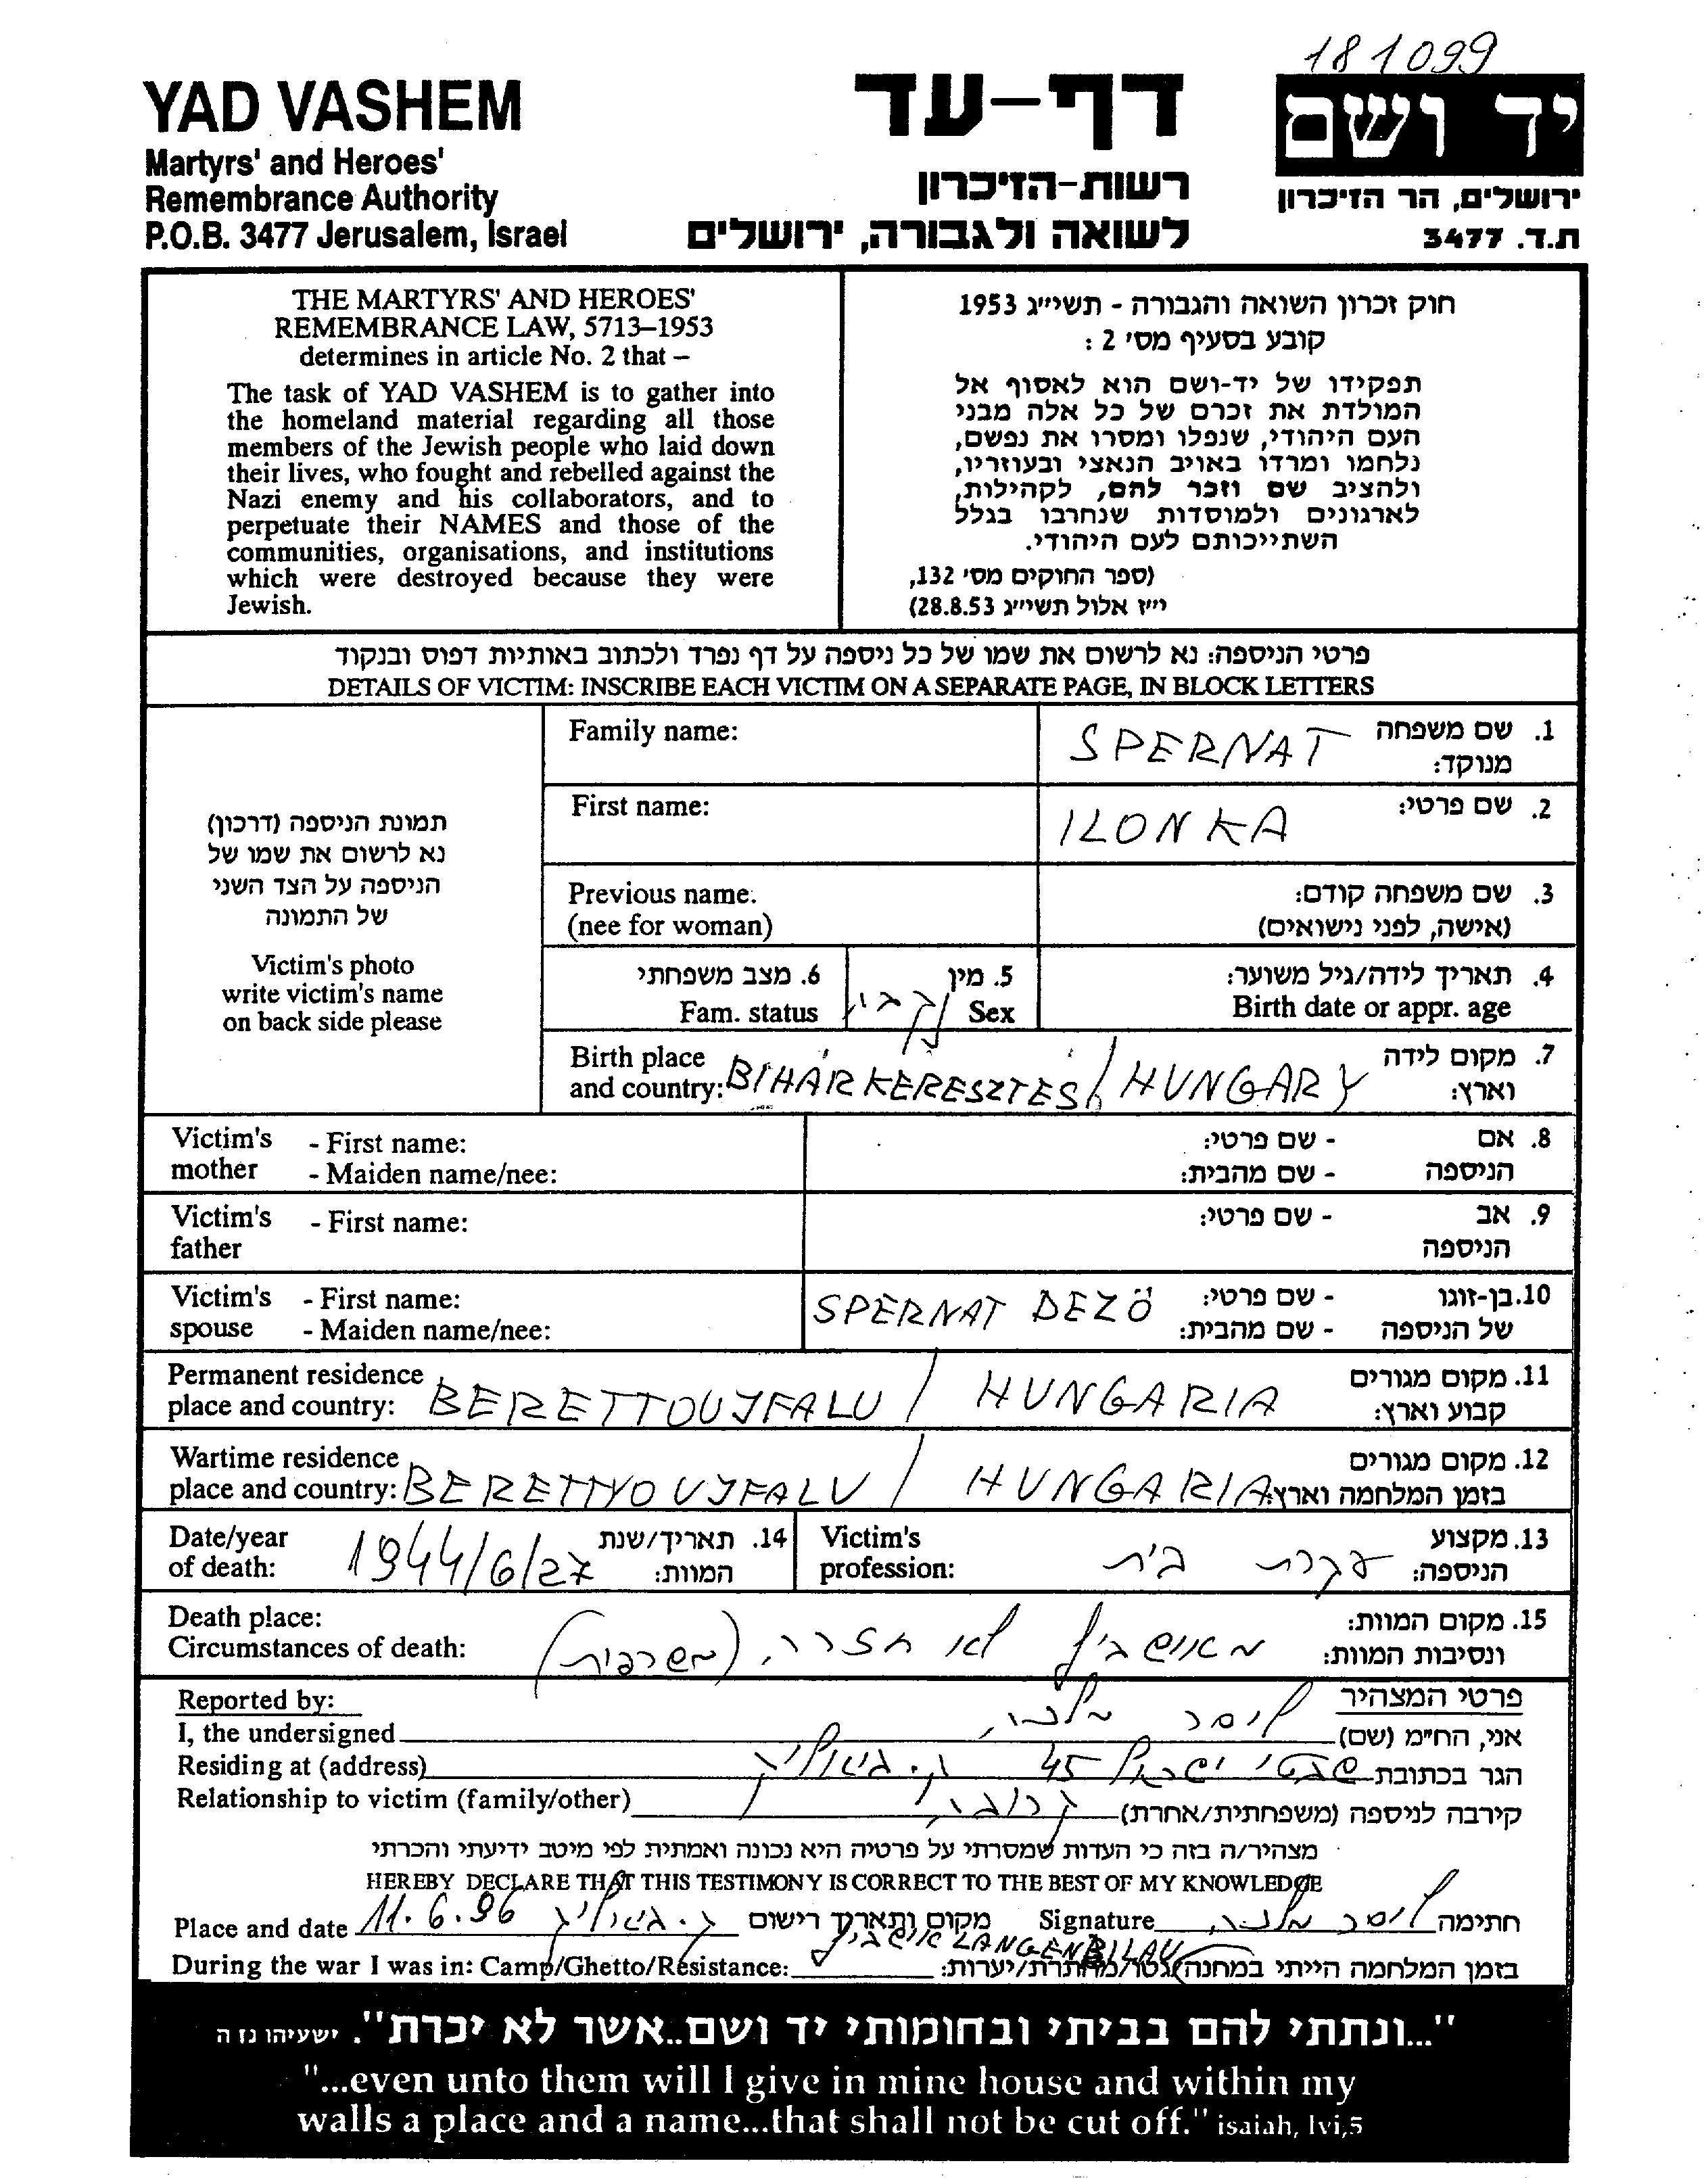 181099
YAD VASHEM
Martyrs' and Heroes'
Remembrance Authority
P.O.B. 3477 Jerusalem, Israel
דף-עד
רשות-הזיכרון
לשואה ולגבורה, ירושלים
יד ושם
ירושלים, הר הזיכרון
ת.ד. 3477
THE MARTYRS' AND HEROES'
REMEMBRANCE LAW, 5713–1953
determines in article No. 2 that –
The task of YAD VASHEM is to gather into
the homeland material regarding all those
members of the Jewish people who laid down
their lives, who fought and rebelled against the
Nazi enemy and his collaborators, and to
perpetuate their NAMES and those of the
communities, organisations, and institutions
which were destroyed because they were
Jewish.
חוק זכרון השואה והגבורה - תשי״ג 1953
קובע בסעיף מס׳ 2 :
תפקידו של יד-ושם הוא לאסוף אל
המולדת את זכרם של כל אלה מבני
העם היהודי, שנפלו ומסרו את נפשם,
נלחמו ומרדו באויב הנאצי ובעוזריו,
ולהציב שם וזכר להם, לקהילות,
לארגונים ולמוסדות שנחרבו בגלל
השתייכותם לעם היהודי.
(ספר החוקים מס׳ 132,
י״ז אלול תשי״ג 28.8.53)
פרטי הניספה: נא לרשום את שמו של כל ניספה על דף נפרד ולכתוב באותיות דפוס ובנקוד
DETAILS OF VICTIM: INSCRIBE EACH VICTIM ON A SEPARATE PAGE, IN BLOCK LETTERS
תמונת הניספה (דרכון)
נא לרשום את שמו של
הניספה על הצד השני
של התמונה
Victim's photo
write victim's name
on back side please
Family name: SPERNAT 1. שם משפחה
מנוקד:
First name: ILONKA 2. שם פרטי:
Previous name: 3. שם משפחה קודם:
(nee for woman) (אישה, לפני נישואים)
6. מצב משפחתי 5. מין 4. תאריך לידה/גיל משוער:
Fam. status נקבי Sex Birth date or appr. age
Birth place 7. מקום לידה
and country: BIHÁRKERESZTES / HUNGARY וארץ:
Victim's - First name: - שם פרטי: 8. אם
mother - Maiden name/nee: - שם מהבית: הניספה
Victim's - First name: - שם פרטי: 9. אב
father הניספה
Victim's - First name: SPERNAT DEZÖ - שם פרטי: 10. בן-זוגו
spouse - Maiden name/nee: - שם מהבית: של הניספה
Permanent residence 11. מקום מגורים
place and country: BERETTOUJFALU / HUNGARIA קבוע וארץ:
Wartime residence 12. מקום מגורים
place and country: BERETTYOUJFALU / HUNGARIA בזמן המלחמה וארץ:
Date/year 14. תאריך/שנת Victim's 13. מקצוע
of death: 1944/6/27 המוות: profession: עקרת בית הניספה:
Death place: 15. מקום המוות:
Circumstances of death: מאושביץ לא חזרה, (משרפות) ונסיבות המוות:
Reported by: פרטי המצהיר
I, the undersigned אני, הח״מ (שם)
Residing at (address) הגר בכתובת שבטי ישראל 45 ק. ביאליק
Relationship to victim (family/other) קירבה לניספה (משפחתית/אחרת)
מצהיר/ה בזה כי העדות שמסרתי על פרטיה היא נכונה ואמתית לפי מיטב ידיעתי והכרתי
HEREBY DECLARE THAT THIS TESTIMONY IS CORRECT TO THE BEST OF MY KNOWLEDGE
Place and date 11.6.96 ק. ביאליק מקום ותאריך רישום Signature חתימה
אושביץ LANGENBILAU
During the war I was in: Camp/Ghetto/Resistance: בזמן המלחמה הייתי במחנה/גטו/מחתרת/יערות:
"...ונתתי להם בביתי ובחומותי יד ושם..אשר לא יכרת". ישעיהו נז ה
"...even unto them will I give in mine house and within my
walls a place and a name...that shall not be cut off." isaiah, lvi,5